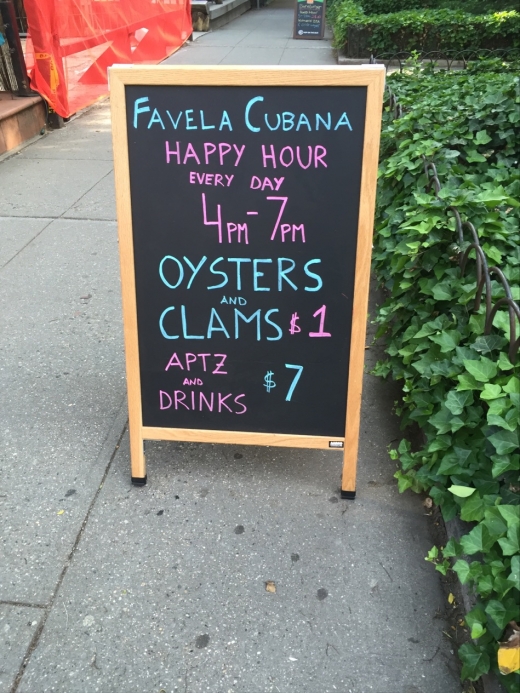 FAVELA CUBANA
HAPPY HOUR
EVERY DAY
4PM-7PM
OYSTERS
AND
CLAMS $1
APTZ
AND
DRINKS
$7